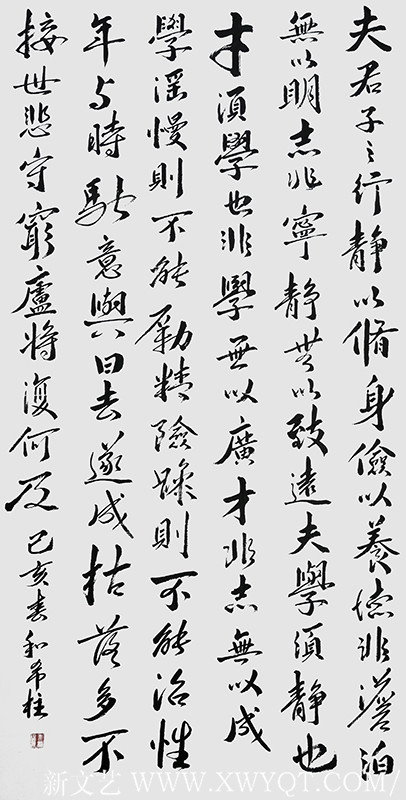 夫君子之行静以脩身儉以養德非澹泊
無以明志非寧静無以致遠夫學須静也
才須學也非學無以廣才非志無以成
學滛慢則不能勵精險躁則不能冶性
年与時馳意與日去遂成枯落多不
接世悲守窮廬將復何及
己亥春和希柱
新文艺 WWW.XWYQT.COM